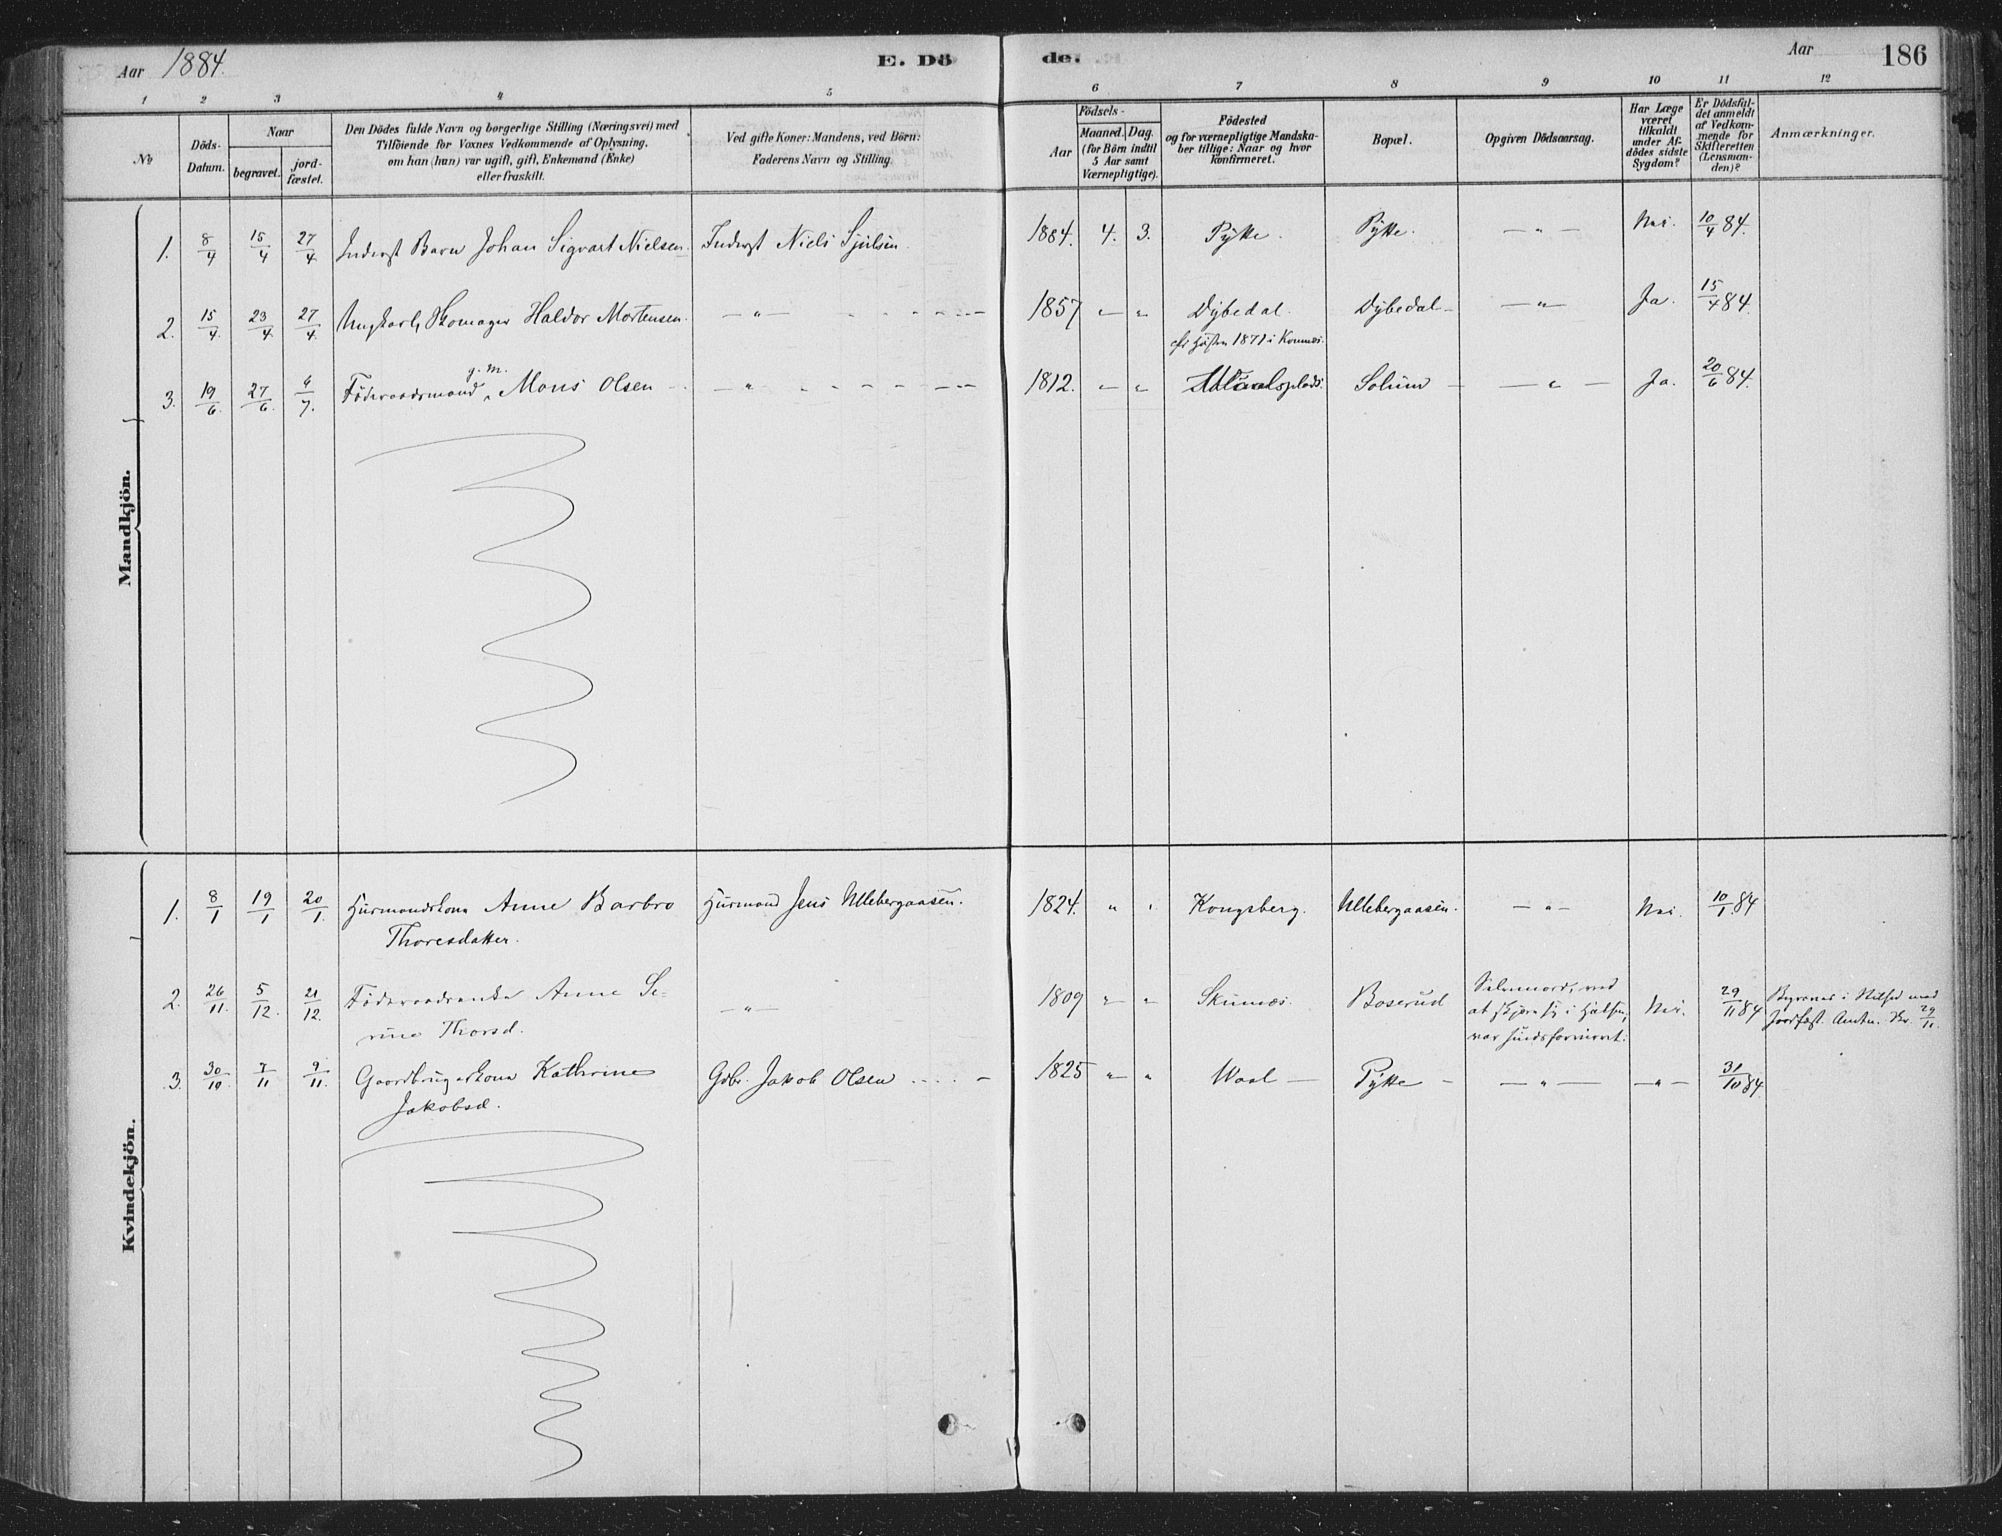 Aar 1884.
E. Dö
de.
Aar
186
1 2 3 4 5 6 7 8 9 10 11 12
No
Döds-
Datum.
Naar
begravet.
jord-
fæstet.
Den Dödes fulde Navn og borgerlige Stilling (Næringsvei) med
Tilföiende for Voxnes Vedkommende af Oplysning,
om han (hun) var ugift, gift, Enkemand (Enke)
eller fraskilt.
Ved gifte Koner: Mandens, ved Börn:
Faderens Navn og Stilling.
Födsels-
Aar
Maaned. Dag.
(for Börn indtil
5 Aar samt
Værnepligtige).
Födested
og for værnepligtige Mandska-
ber tillige: Naar og hvor
konfirmeret.
Bopæl.
Opgiven Dödsaarsag.
Har Læge
været
tilkaldt
under Af-
dödes sidste
Sygdom?
Er Dödsfal-
det anmeldt
af Vedkom-
mende for
Skifteretten
(Lensman-
den)?
Anmærkninger.
Mandkjön.
1. 8/4 15/4 27/4 Inderst Barn Johan Sigvart Nielsen. Inderst Niels 1884. 4. 3. Pytte. Pytte. — " — Nei. 10/4 84.
2. 15/4. 23/4 27/4. Ungkarl, Skomager Haldor Mortensen. — " — 1857 — " Dybedal. Dybedal — — " — Ja. 15/4 84.
1871 i
g. M.
3. 19/6. 27/6. 4/7. Föderaadsmand, Mons Olsen — " — 1812. — " Solum — — " — Ja. 20/6 84.
Kvindekjön.
1. 8/1 19/1 20/1. Husmandskone Anne Barbro Husmand Jens Ullebergaasen. 1824. " " Kongsberg. Ullebergaasen. — " — Nei. 10/1 84
Thoresdatter.
2. 26/11. 5/12. 21/12. Föderaadsenke Anne Se- — " — 1809 " " Boserud Selvmord, ved Nei. 29/11 84
rine Thorsd. at skjære sig i Halsen,
var sindsforvirret.
3. 30/10. 7/11 9/11. Gaardbrugerkone Kathrine Gdbr. Jakob Olsen — 1825 — " Waal — Pytte — — " — — " — 31/10 84.
Jakobsd.